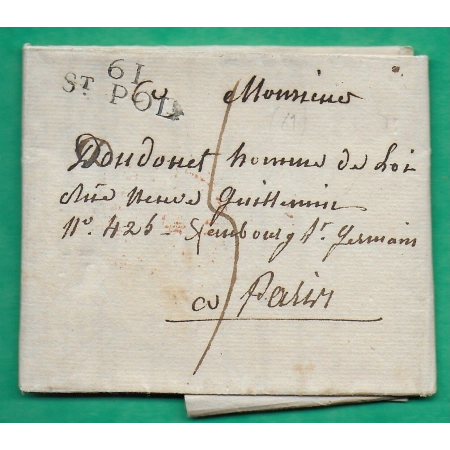 61
ST POL
a Monsieur
Doudouet homme de Loi
Rüe neuve Guillemin
n°. 425 - faubourg St. germain
a Paris
5